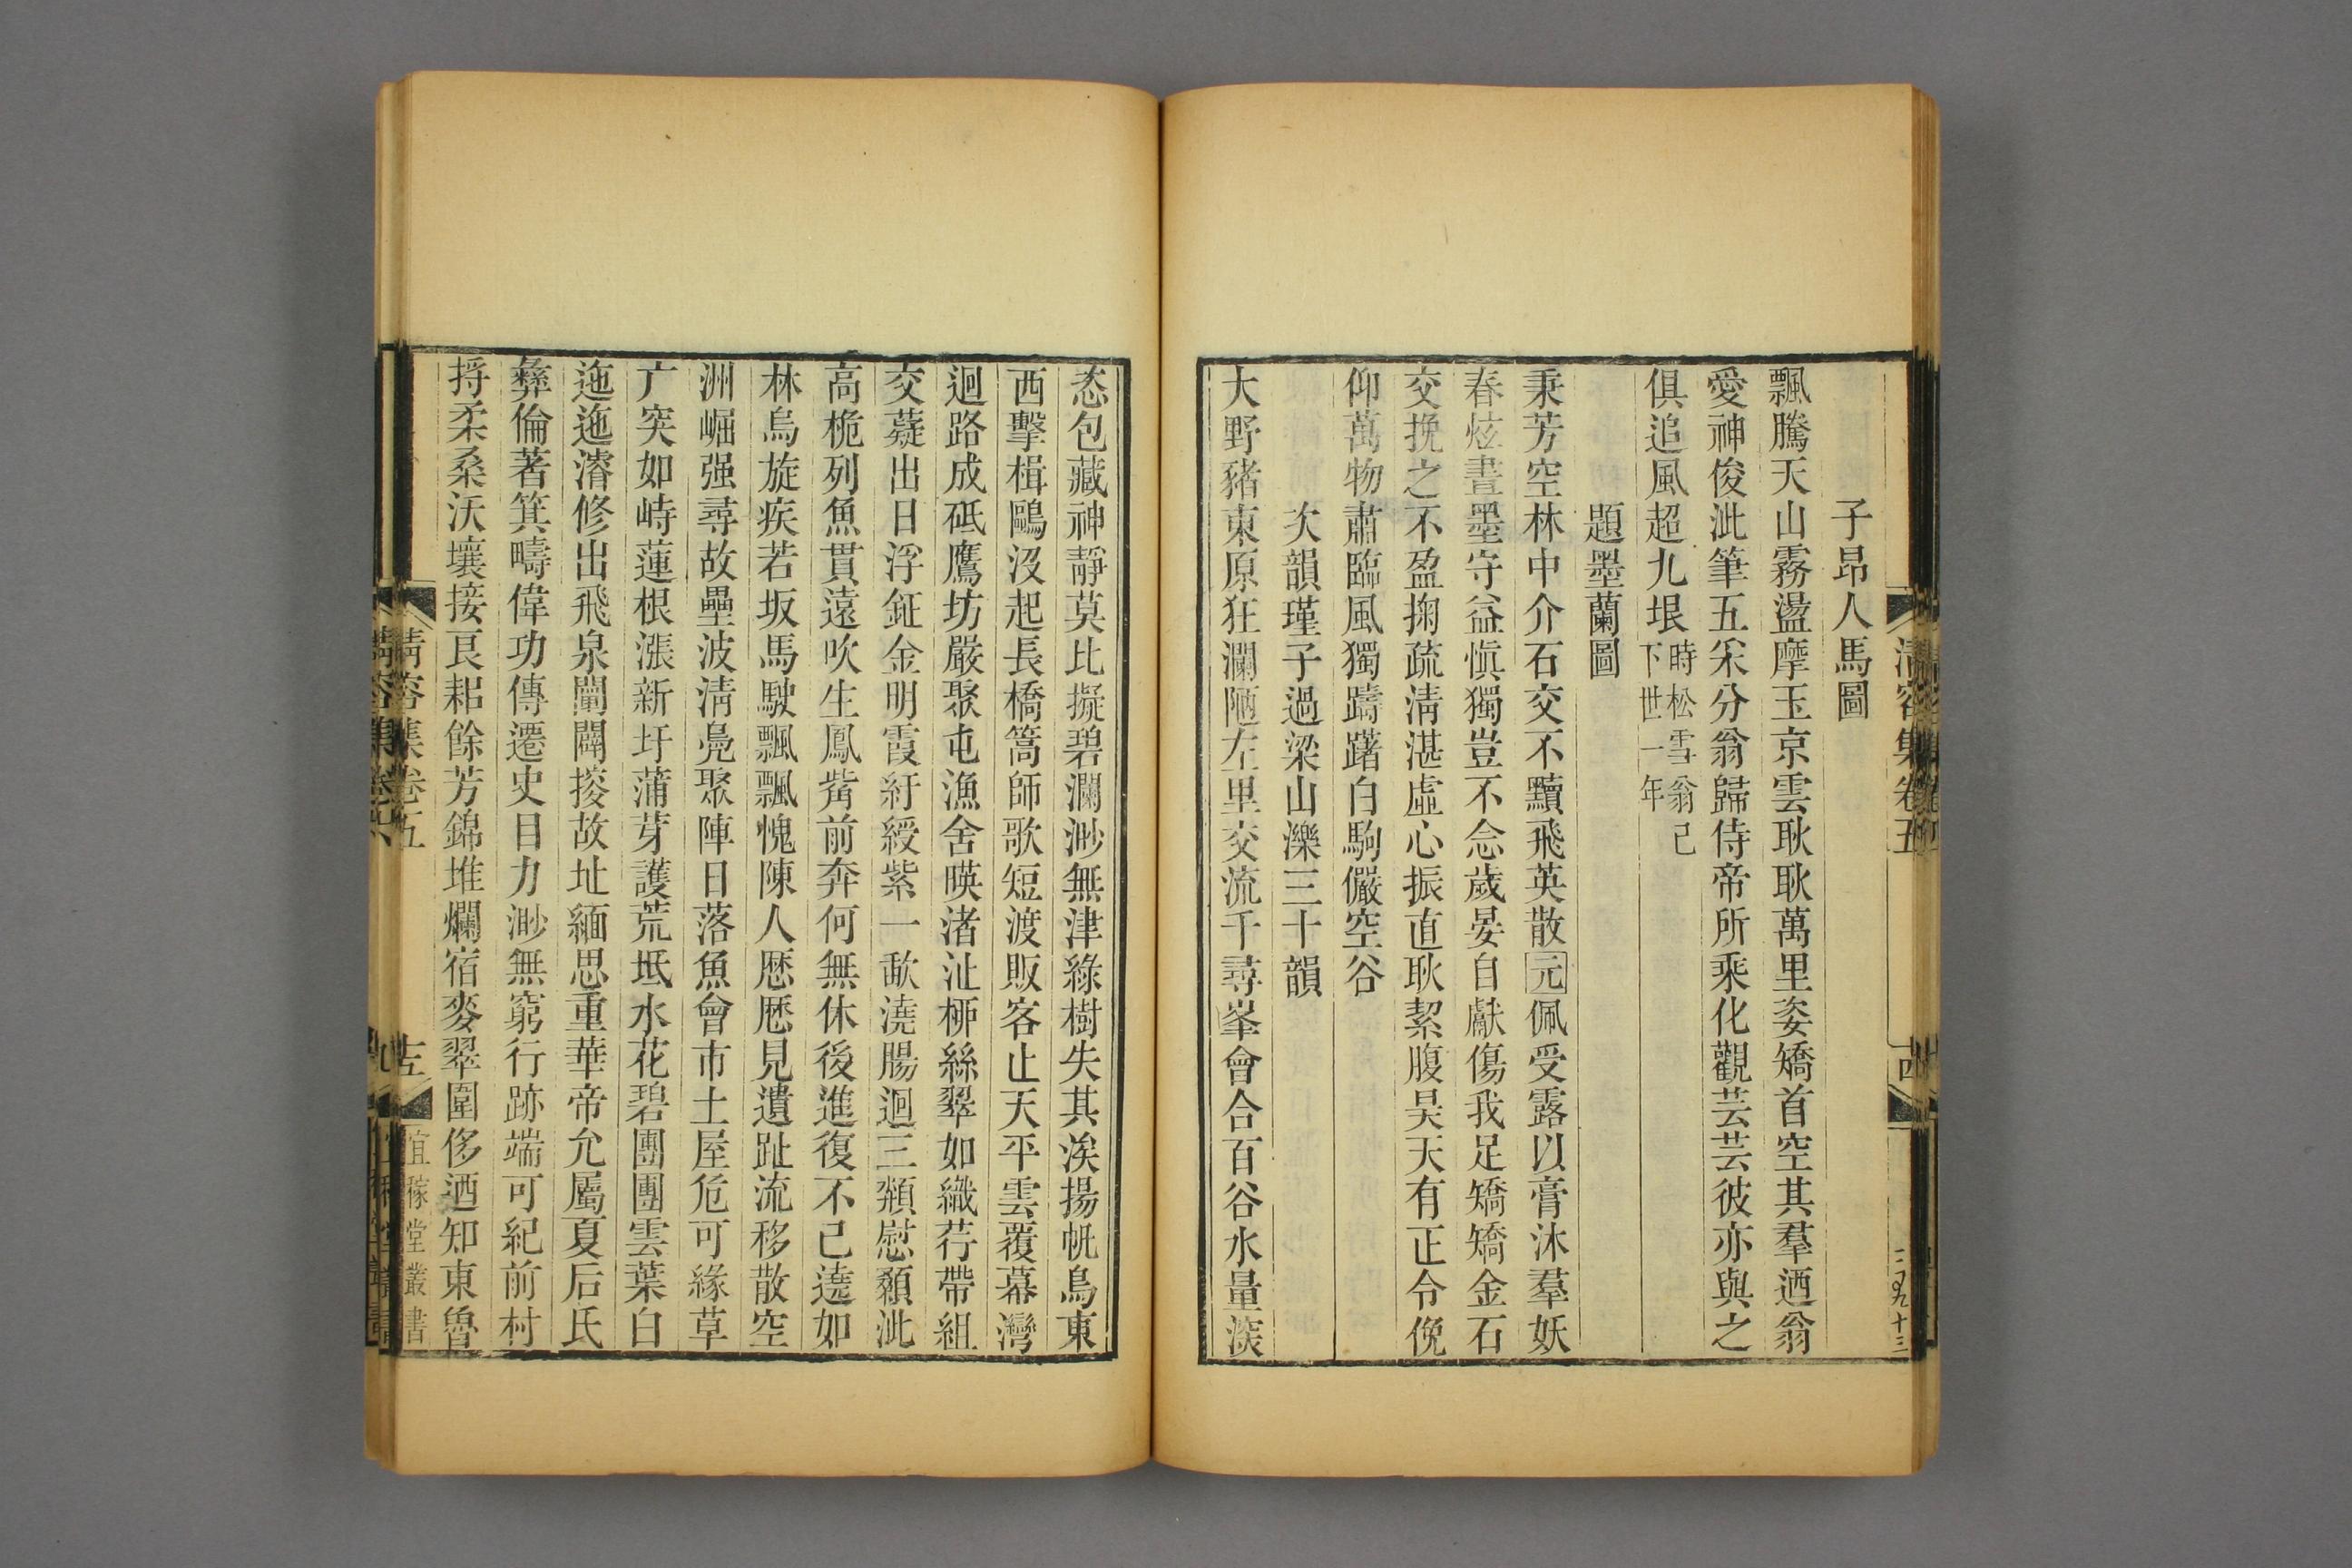 子昂人馬圖
飄騰天山霧盪摩玉京雲耿耿萬里姿矯首空其羣迺翁
愛神俊泚筆五采分翁歸侍帝所乘化觀芸芸彼亦與之
俱追風超九垠時松雪翁己下世一年
題墨蘭圖
秉芳空林中介石交不黷飛英散元佩受露以膏沐羣妖
春炫晝墨守益愼獨豈不念歲晏自獻傷我足矯矯金石
交挽之不盈掬疏淸湛虛心振直耿絜腹吴天有正令俛
仰萬物肅臨風獨躊躇白駒儼空谷
次韻瑾子過梁山濼三十韻
大野豬東原狂瀾陋左里交流千尋峯會合百谷水量淡
恣包藏神靜莫比擬碧瀾渺無津綠樹失其涘揚帆鳥東
西擊楫鷗沒起長橋篙師歌短渡販客止天平雲覆幕灣
迴路成砥鷹坊嚴聚屯漁舍暎渚沚桺絲翠如織荇帶組
交薿出日浮鉦金明霞紆綬紫一歃澆腸迴三頮慰顙泚
高桅列魚貫遠吹生鳳觜前奔何無休後進復不已遶如
林烏旋疾若坂馬駛飄飄愧陳人歷歷見遺趾流移散空
洲崛强尋故壘波淸鳧聚陣日落魚會市土屋危可緣草
广突如峙蓮根漲新圩蒲芽護荒坻水花碧團團雲葉白
迤迤濬修出飛泉闓闢搂故址緬思重華帝允屬夏后氏
彝倫著箕疇偉功傳遷史目力渺無窮行跡端可紀前村
捋柔桑沃壤接良耜餘芳錦堆爛宿麥翠圍侈迺知東魯
淸容集卷五
宜稼堂叢書